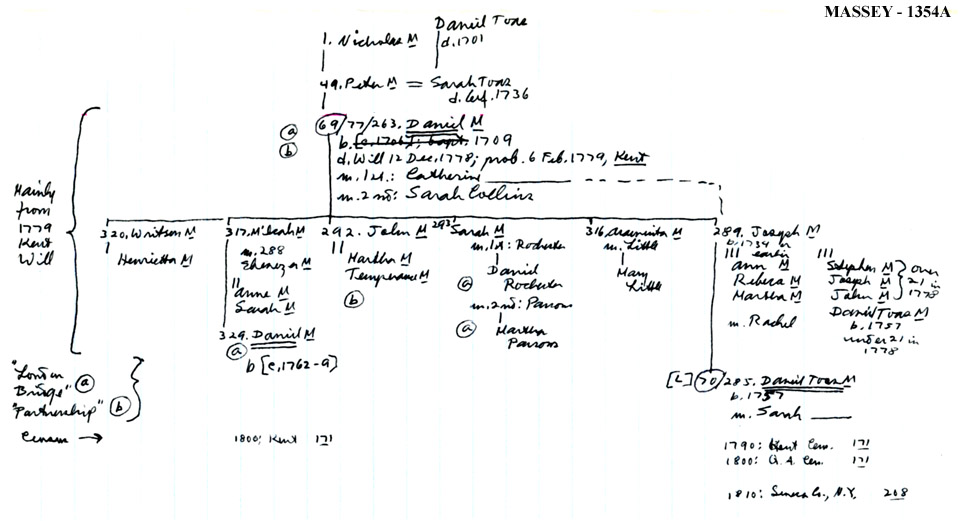 MASSEY - 1354A
Daniel Toas
d. 1701
1. Nicholas M
49. Peter M = Sarah Toas
d. bef. 1736
(a) 69/77/263. Daniel M
(b) b. [c. 1706]; bapt. 1709
d. Will 12 Dec. 1778; prob. 6 Feb. 1779, Kent
m. 1st: Catherine
m. 2nd: Sarah Collins
Mainly
from
1779
Kent
Will
320. Writson M
Henrietta M
317. M'Beah M
m. 288
Ebenezer M
Anne M
Sarah M
329. Daniel M
(a)
b [c. 1762-9]
292. John M
Martha M
Temperance M
(b)
293 Sarah M
m. 1st: Rochester
(a) Daniel
Rochester
m. 2nd: Parsons
(a) Martha
Parsons
316. Araminta M
m. Little
Mary
Little
289. Joseph M
b. 1734 or
earlier
Ann M
Rebecca M
Martha M
m. Rachel
Stephen M
Joseph M
John M
over
21 in
1778
Daniel Toas M
b. 1757
under 21 in
1778
[L] 70/285. Daniel Toas M
b. 1757
m. Sarah
"London
Bridge" (a)
"Partnership" (b)
Census →
1800: Kent 171
1790: Kent Cen. 171
1800: Q. A. Cen. 171
1810: Seneca Co., N.Y. 208